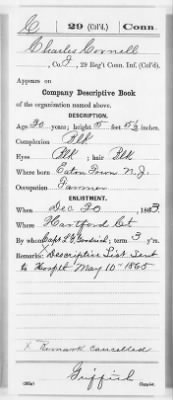 C 29 (Col'd.) Conn.
Charles Cornell
, Co. J, 29 Reg't Conn. Inf. (Col'd).
Appears on
Company Descriptive Book
of the organization named above.
DESCRIPTION.
Age 30 years; height 5 feet 5½ inches.
Complexion Blk
Eyes Blk ; hair Blk
Where born Eaton Town N.J.
Occupation Farmer
ENLISTMENT.
When Dec 30 , 1863
Where Hartford Ct
By whom Capt L. G. Goodrich; term 3 y'rs.
Remarks: X Descriptive List sent
to Hospt May 10" 1865
X Remark cancelled
Griffith
Copyist.